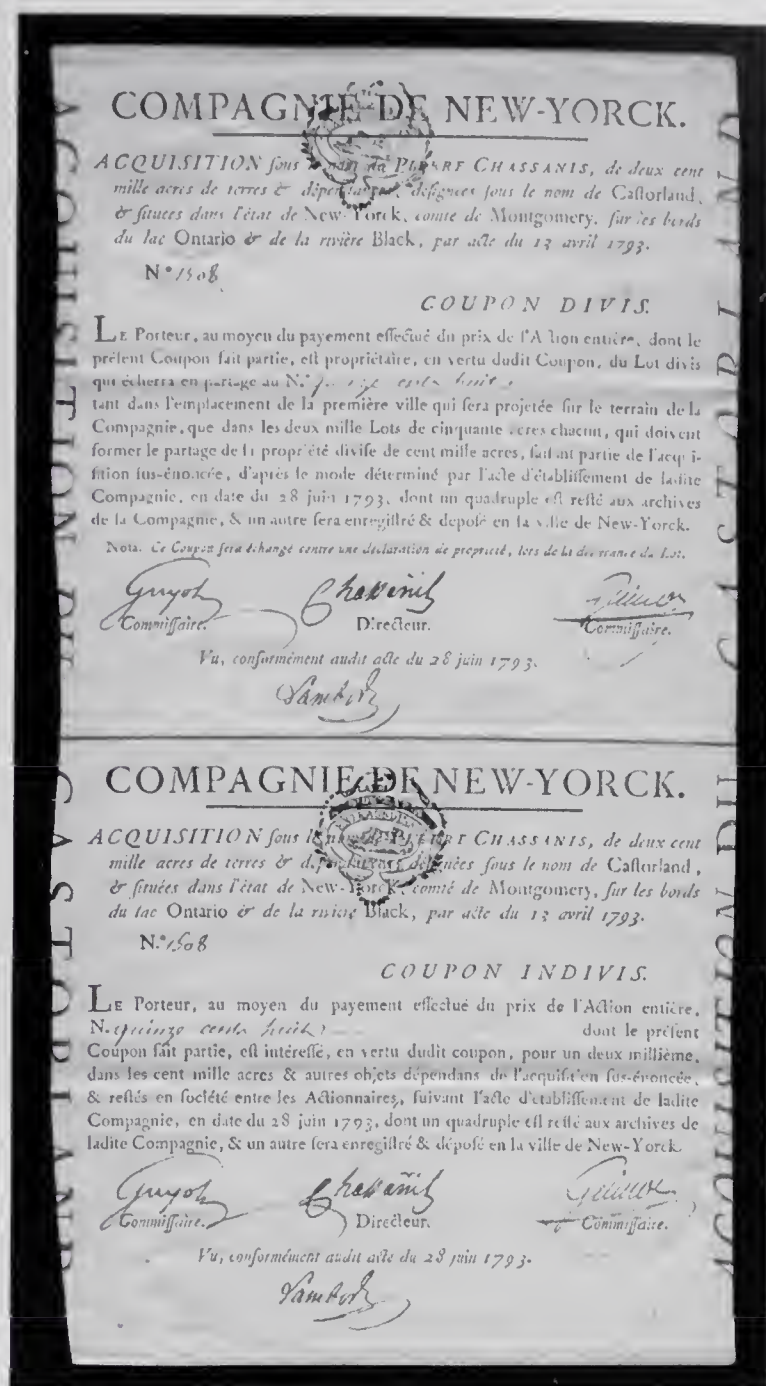 COMPAGNIE DE NEW-YORCK.
ACQUISITION sous le nom de PIERRE CHASSANIS, de deux cent
mille acres de terres & dépendances, désignées sous le nom de Castorland,
& situées dans l'état de New-Yorck, comté de Montgomery, sur les bords
du lac Ontario & de la rivière Black, par acte du 13 avril 1793.
N° 1508
COUPON DIVIS.
LE Porteur, au moyen du payement effectué du prix de l'Action entière, dont le
présent Coupon fait partie, est propriétaire, en vertu dudit Coupon, du Lot divis
qui écherra en partage au N. quinze cents huit
tant dans l'emplacement de la première ville qui sera projetée sur le terrain de la
Compagnie, que dans les deux mille Lots de cinquante acres chacun, qui doivent
former le partage de la propriété divise de cent mille acres, faisant partie de l'acqui-
sition sus-énoncée, d'après le mode déterminé par l'acte d'établissement de ladite
Compagnie, en date du 28 juin 1793, dont un quadruple est resté aux archives
de la Compagnie, & un autre sera enregistré & déposé en la ville de New-Yorck.
Nota. Ce Coupon sera échangé contre une déclaration de propriété, lors de la délivrance du Lot.
Guyot Chassanis
Commissaire. Directeur. Commissaire.
Vu, conformément audit acte du 28 juin 1793.
COMPAGNIE DE NEW-YORCK.
ACQUISITION sous le nom de PIERRE CHASSANIS, de deux cent
mille acres de terres & dépendances désignées sous le nom de Castorland,
& situées dans l'état de New-Yorck, comté de Montgomery, sur les bords
du lac Ontario & de la rivière Black, par acte du 13 avril 1793.
N.° 1508
COUPON INDIVIS.
LE Porteur, au moyen du payement effectué du prix de l'Action entière,
N. quinze cents huit dont le présent
Coupon fait partie, est intéressé, en vertu dudit coupon, pour un deux millième,
dans les cent mille acres & autres objets dépendans de l'acquisition sus-énoncée,
& restés en société entre les Actionnaires, suivant l'acte d'établissement de ladite
Compagnie, en date du 28 juin 1793, dont un quadruple est resté aux archives de
ladite Compagnie, & un autre sera enregistré & déposé en la ville de New-Yorck.
Guyot Chassanis
Commissaire. Directeur. Commissaire.
Vu, conformément audit acte du 28 juin 1793.
ACQUISITION DU CASTORLAND
ACQUISITION DU CASTORLAND